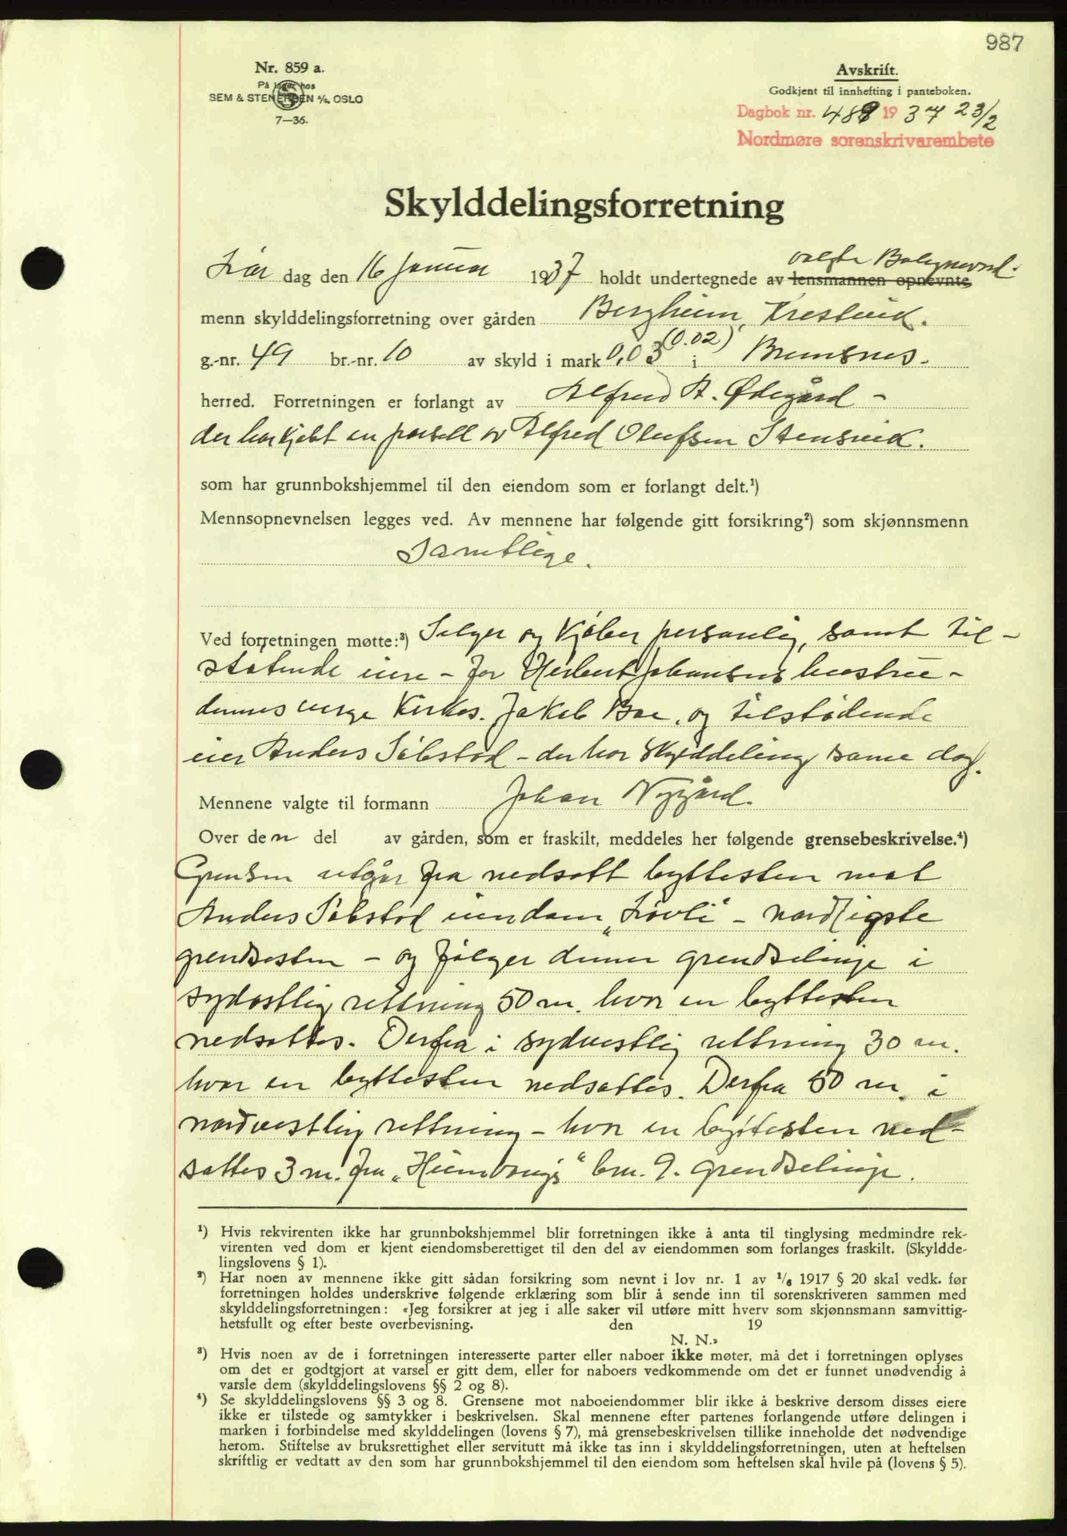 987
Nr. 859 a.
På lager hos
SEM & STENERSEN A/S. OSLO
7—36.
Avskrift.
Godkjent til innhefting i panteboken.
Dagbok nr. 489 1937 23/2
Nordmøre sorenskrivarembete
Skylddelingsforretning
Lør dag den 16 januar 1937 holdt undertegnede av lensmannen opnevnte valgte
menn skylddelingsforretning over gården Bergheim, Krestvik.
g.-nr. 49 br.-nr. 10 av skyld i mark 0,03 (0.02) i Bremsnes.
herred. Forretningen er forlangt av Alfred A. Ødegård -
der har kjøbt en parsell av Alfred Olufsen Stensvik.
som har grunnbokshjemmel til den eiendom som er forlangt delt.¹)
Mennsopnevnelsen legges ved. Av mennene har følgende gitt forsikring²) som skjønnsmenn
Samtlige.
Ved forretningen møtte:³) Selger og Kjøber personlig, samt til-
støtende eiere - for Herbert Johansens hustru -
dennes verge Kirkes. Jakob Boe, og tilstødende
eier Anders Sibstad - der har skylddeling same dag.
Mennene valgte til formann Johan Nygård.
Over den del av gården, som er fraskilt, meddeles her følgende grensebeskrivelse.⁴)
Grensen utgår fra nedsatt byttesten mot
Anders Sibstad eiendom "Løvli" - nordligste
grendsesten - og følger denne grendselinje i
sydøstlig rettning 50 m. hvor en byttesten
nedsattes. Derfra i sydvestlig rettning 30 m.
hvor en byttesten nedsattes. Derfra 50 m. i
nordvestlig rettning - hvor en byttesten ned-
sattes 3 m. fra "Heimvangs" brn. 9. grendselinje.
¹) Hvis rekvirenten ikke har grunnbokshjemmel blir forretningen ikke å anta til tinglysing medmindre rek-
virenten ved dom er kjent eiendomsberettiget til den del av eiendommen som forlanges fraskilt. (Skyldde-
lingslovens § 1).
²) Har noen av mennene ikke gitt sådan forsikring som nevnt i lov nr. 1 av ¹/₆ 1917 § 20 skal vedk. før
forretningen holdes underskrive følgende erklæring som blir å sende inn til sorenskriveren sammen med
skylddelingsforretningen: «Jeg forsikrer at jeg i alle saker vil utføre mitt hverv som skjønnsmann samvittig-
hetsfullt og efter beste overbevisning. den 19
N. N.»
³) Hvis noen av de i forretningen interesserte parter eller naboer ikke møter, må det i forretningen oplyses
om det er godtgjort at varsel er gitt dem, eller for naboers vedkommende om det er funnet unødvendig å
varsle dem (skylddelingslovens §§ 2 og 8).
⁴) Se skylddelingslovens §§ 3 og 8. Grensene mot naboeiendommer blir ikke å beskrive dersom disses eiere
ikke er tilstede og samtykker i beskrivelsen. Skal mennene efter partenes forlangende utføre delingen i
marken i forbindelse med skylddelingen (lovens § 7), må grensebeskrivelsen tillike inneholde det nødvendige
herom. Stiftelse av bruksrettighet eller servitutt må ikke tas inn i skylddelingsforretningen, uten at heftelsen
skriftlig er vedtatt av den som har grunnbokshjemmel til den eiendom som heftelsen skal hvile på (lovens § 5).